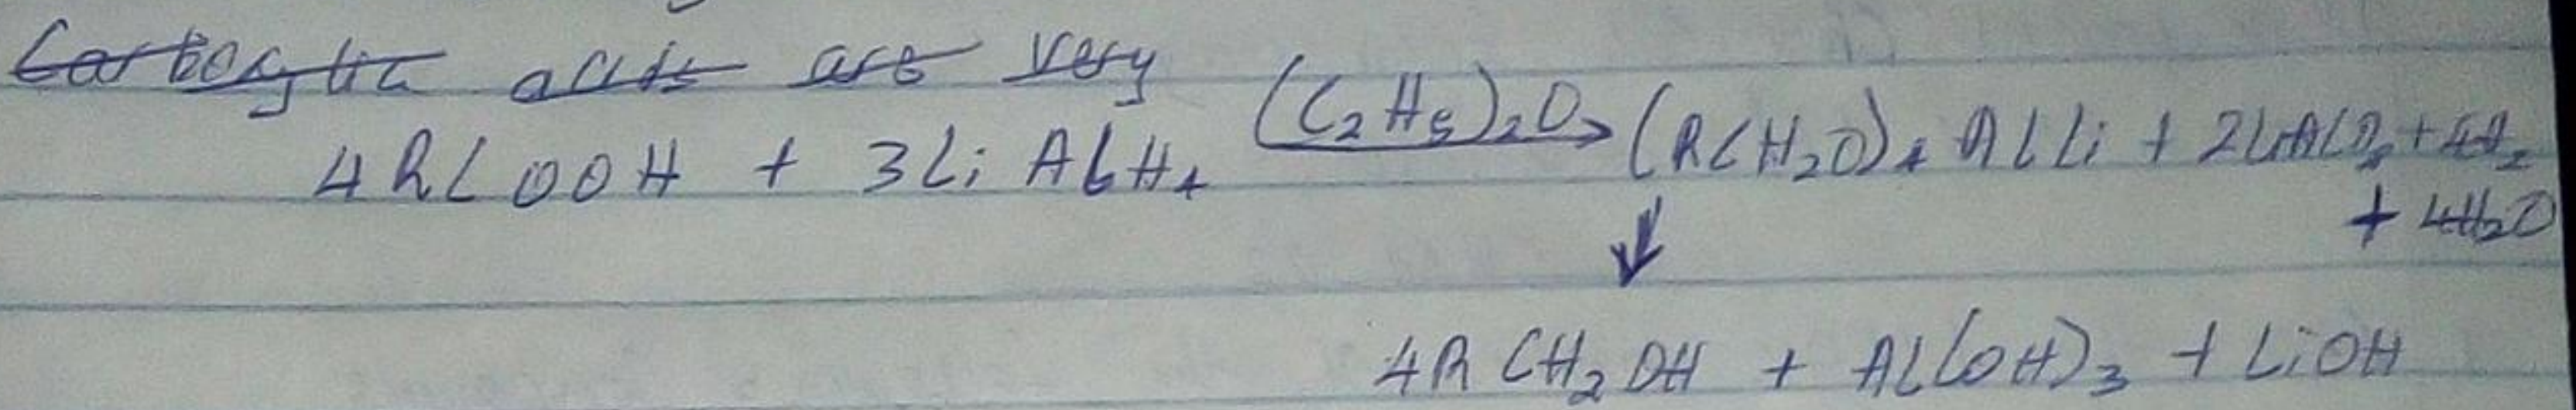 Carboxylic acids are very
4RCOOH + 3LiAlH₄ (C₂H₅)₂O→ (RCH₂O)₄AlLi + 2LiAlO₂ + 4H₂
↓ + 4H₂O
4RCH₂OH + Al(OH)₃ + LiOH